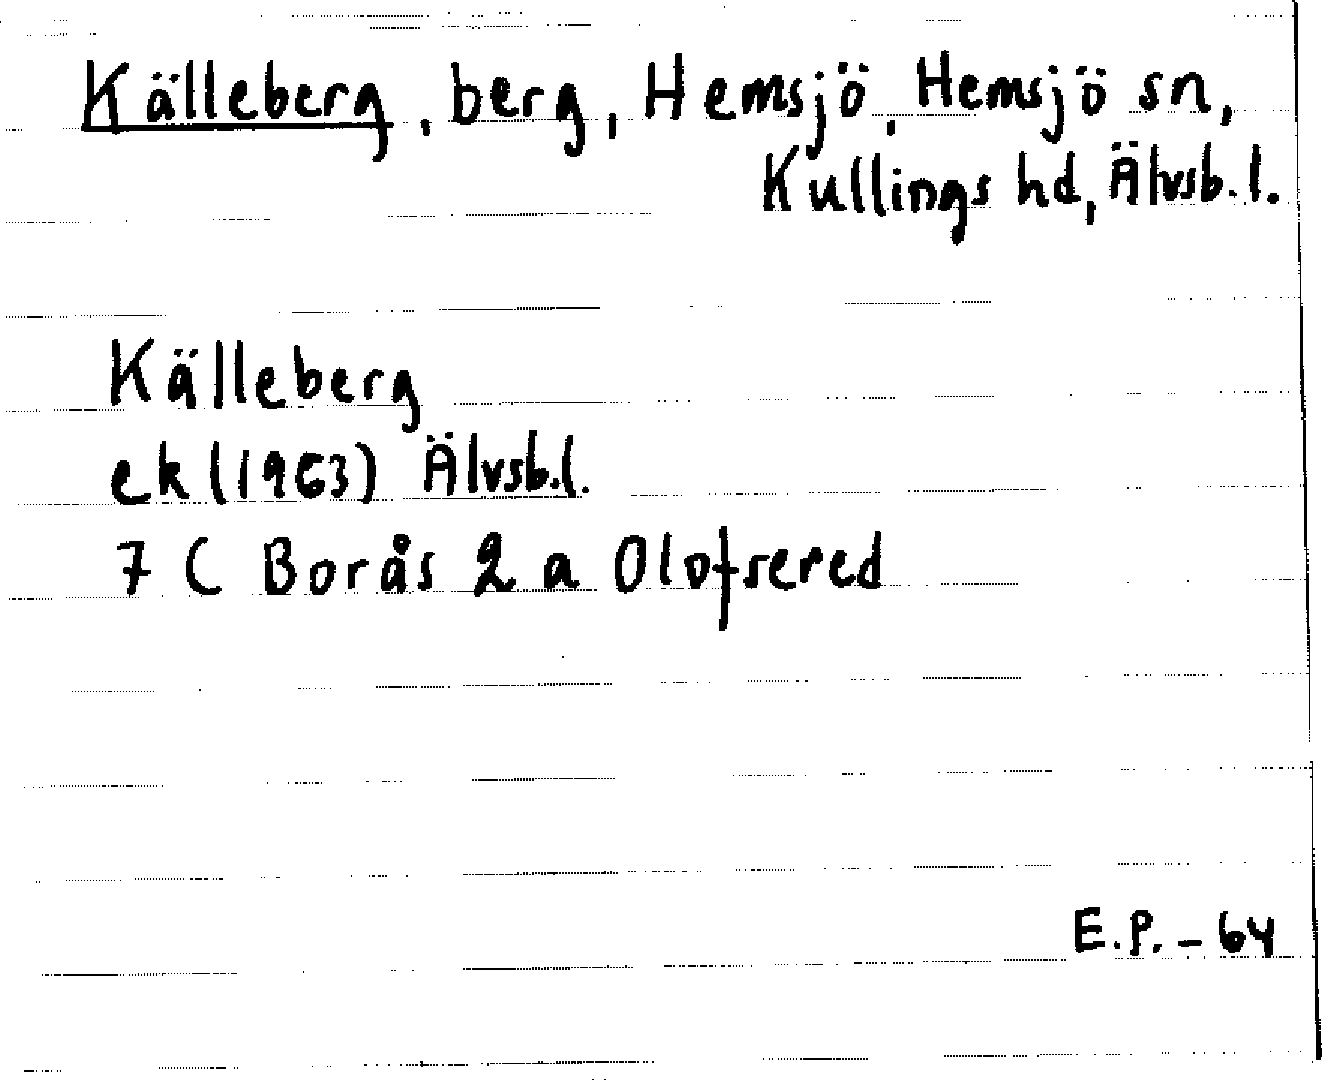 Källeberg, berg, Hemsjö, Hemsjö sn,
Kullings hd, Älvsb. l.
Källeberg
ek (1963) Älvsb.l.
7 C Borås 2 a Olofsered
E.P. - 64